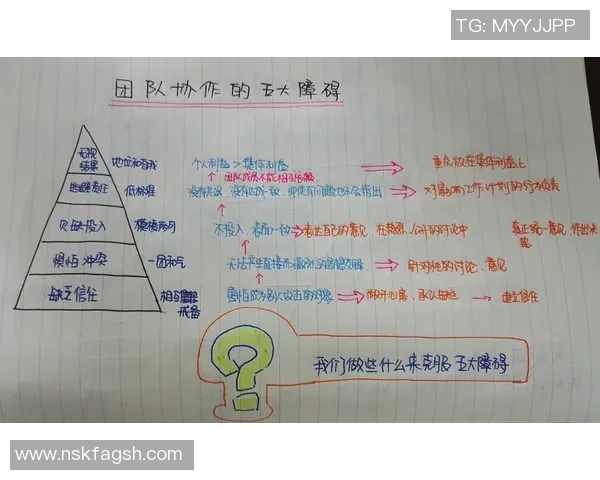 TG: MYYJJPP
团队协作的五大障碍
无视结果 地位和自我 个人利益>集体利益 重点放在集体利益上
团队成员不能相互
逃避责任 低标准 没有达成一致,即使有问题也不会指出 对影响工作计划的行为负责
欠缺投入 模棱两可 不投入,表面一致 表达自己的意见,在 公开的讨论中 真正统一意见,作出决策
惧怕冲突 一团和气 无法产生直接而激烈的思想交锋 针对性的讨论,意见
缺乏信任 相互 戒备 害怕成为别人攻击的对象 敞开心扉,承认 建立信任
我们做些什么来克服五大障碍
www.nskfagsh.com